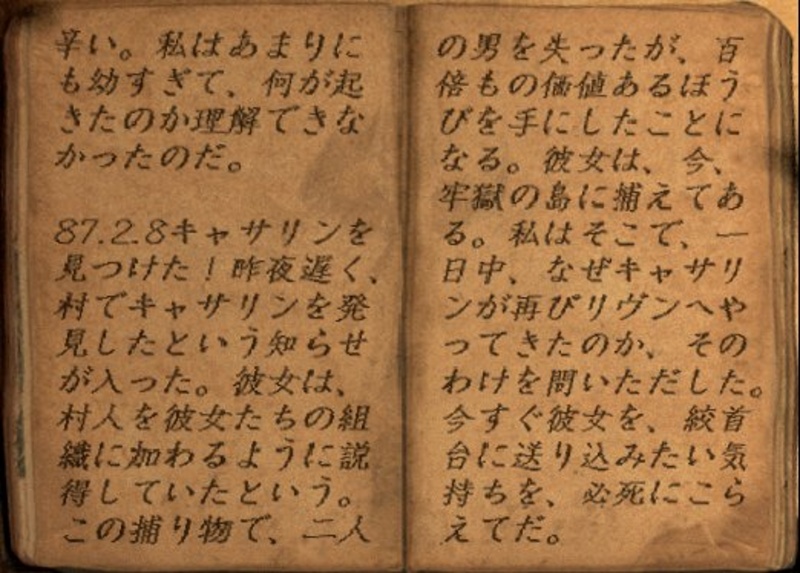 辛い。私はあまりに
も幼すぎて、何が起
きたのか理解できな
かったのだ。
87.2.8キャサリンを
見つけた！昨夜遅く、
村でキャサリンを発
見したという知らせ
が入った。彼女は、
村人を彼女たちの組
織に加わるように説
得していたという。
この捕り物で、二人
の男を失ったが、百
倍もの価値あるほう
びを手にしたことに
なる。彼女は、今、
牢獄の島に捕えてあ
る。私はそこで、一
日中、なぜキャサリ
ンが再びリヴンへや
ってきたのか、その
わけを問いただした。
今すぐ彼女を、絞首
台に送り込みたい気
持ちを、必死にこら
えてだ。